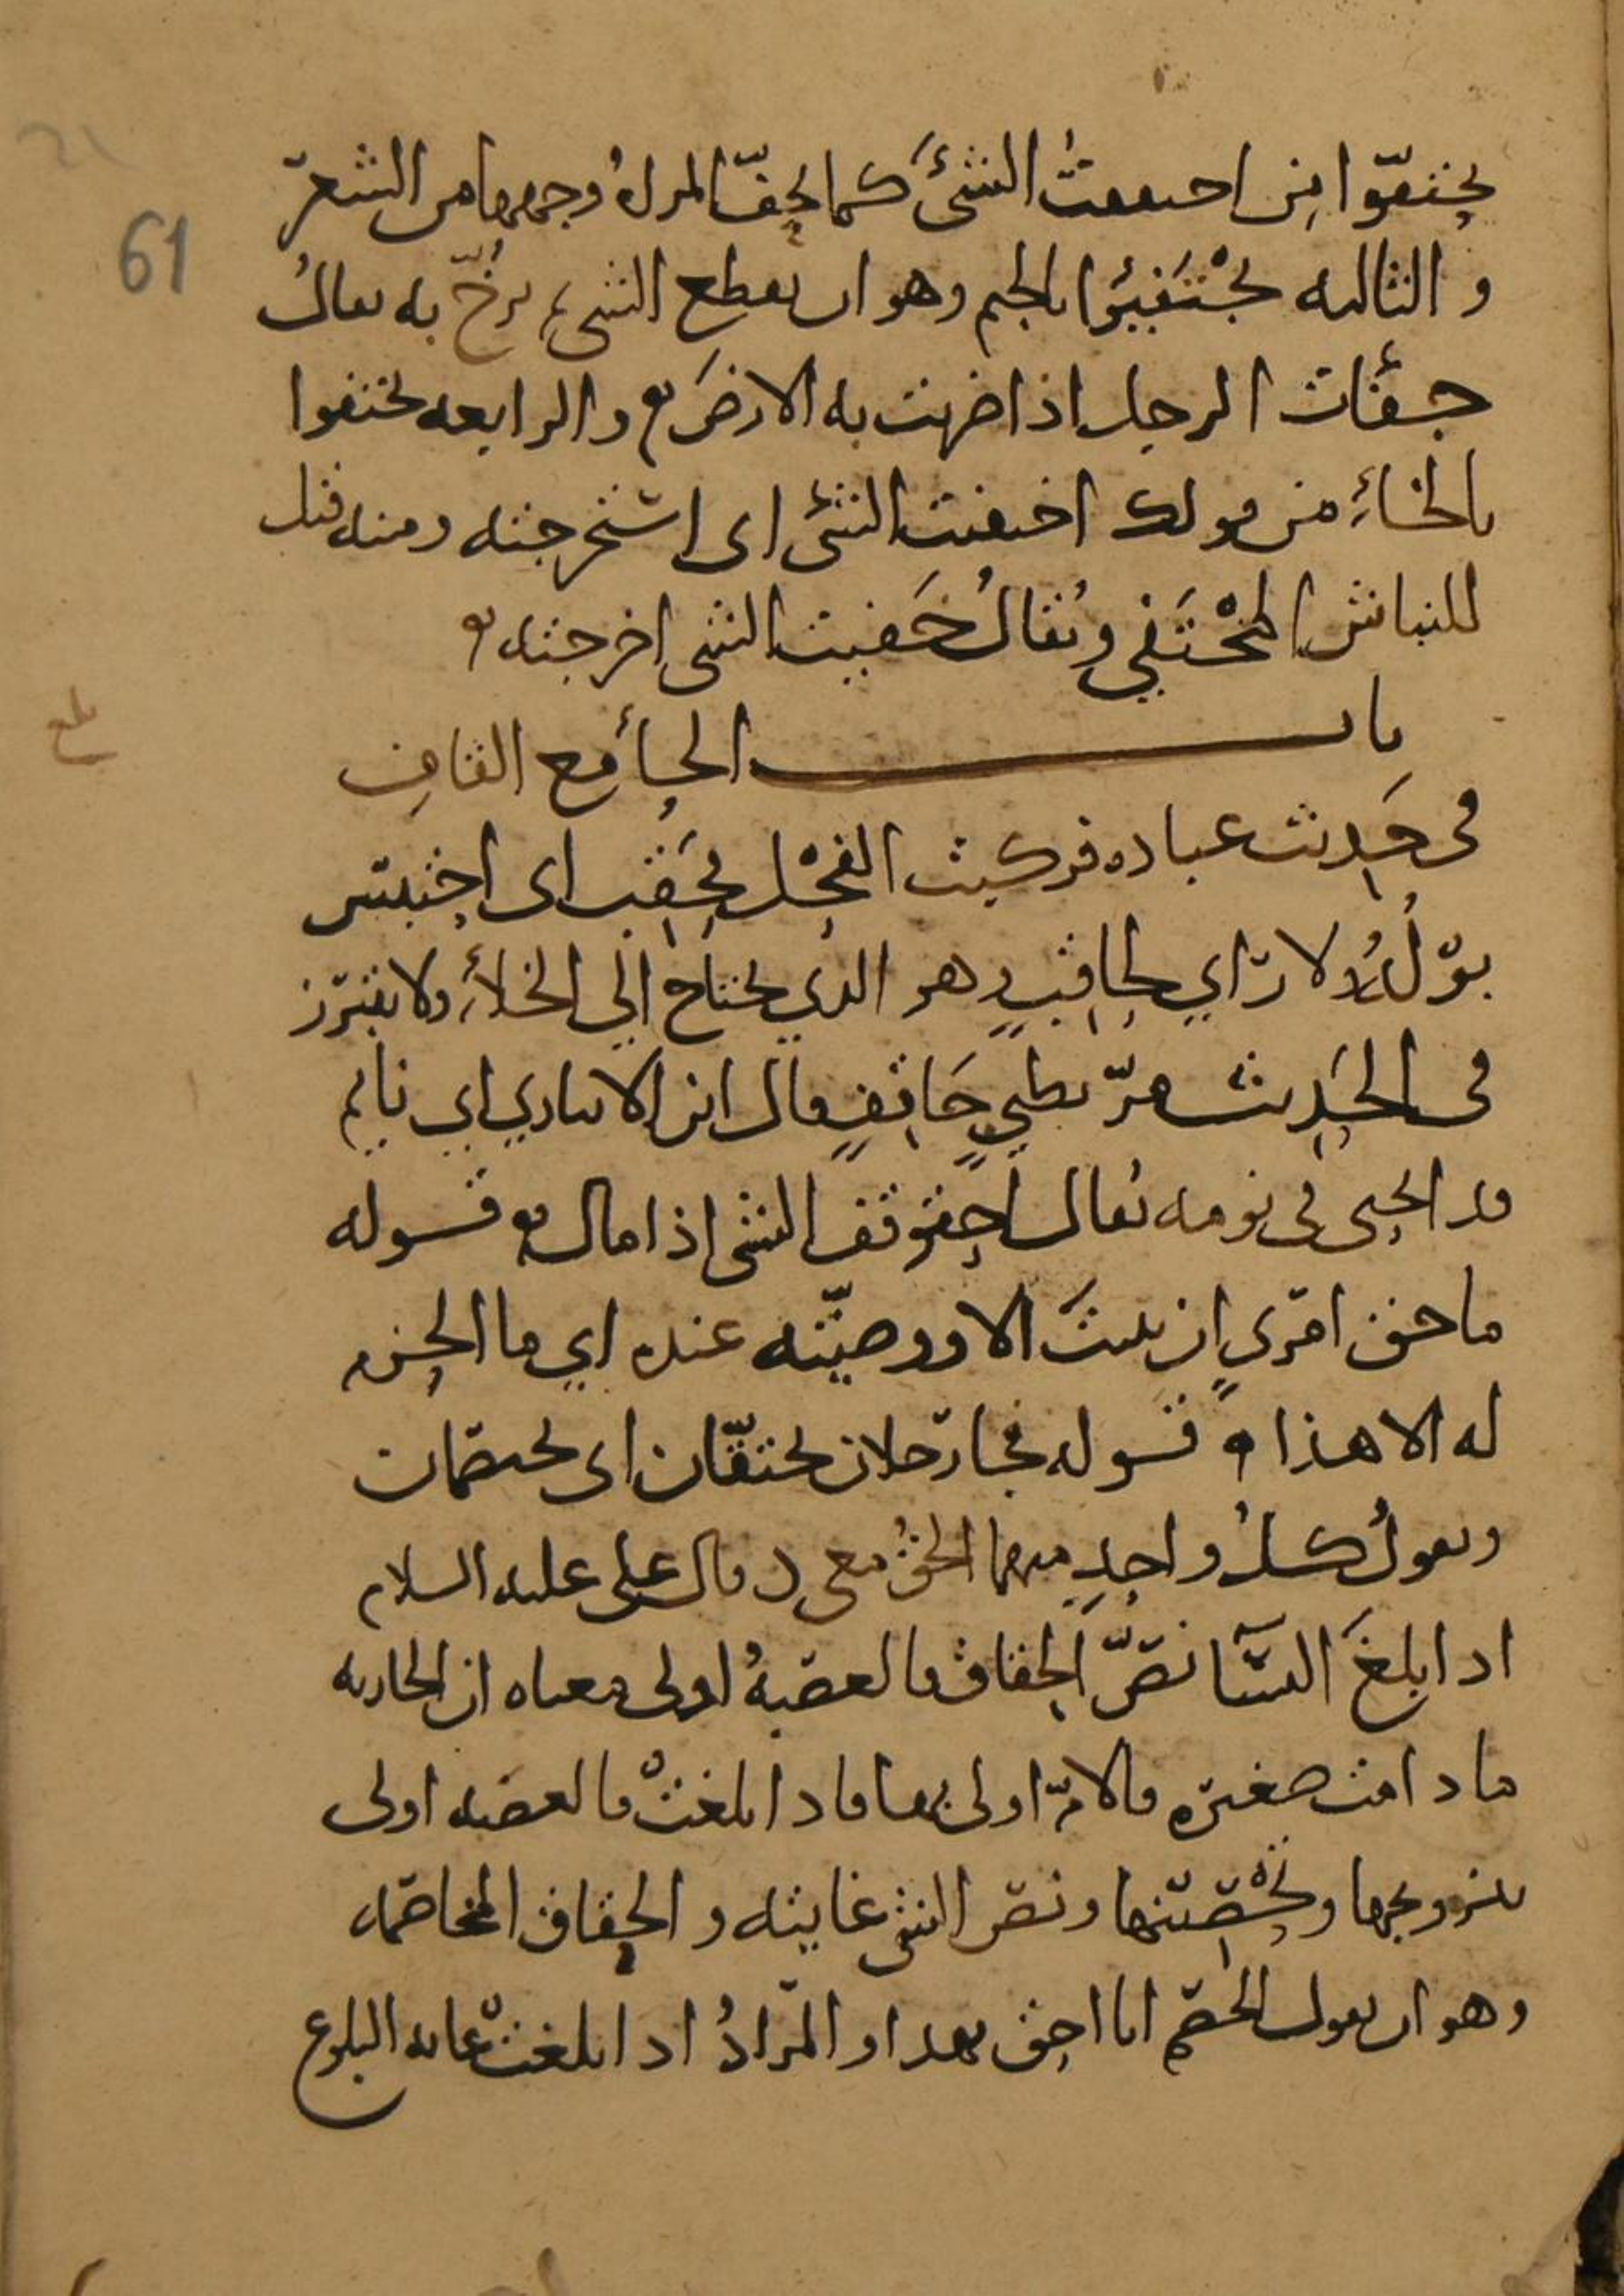 تحتفّوا من احتففتُ الشئَ كما تحفّ المراهُ وجهها من الشعر
والثالثه تَجْتَفِيُوا بالجيم وهو ان يقطع الشيء ثم يرمى به يقالُ
جفأت الرجل اذا ضربت به الارضَ والرابعه تختفوا
بالخاءِ من قولك اختفيت الشئ اى استخرجته ومنه قيل
للنباش المُخْتَفي ويُقالُ خَفيت الشى اخرجته
باب الحاء مع القاف
فى حديث عباده فركبت الفحْل فحَقِب اى احتبس
بوْلُهُ ولا رَاي لحاقِبٍ وهو الذي يحتاج الي الخلاءِ ولا يتبرز
فى الحديث مرّ بظبيٍ حَاقِفٍ قال ابن الانباري اي نايم
قد انحنى فى نومه يقال احقوقف الشى اذا مال قوله
ما حق امرىٍ ان يبيتَ الا ووصيّته عنده اي ما الحزم
له الا هذا قوله فجا رجلان يحتقّان اى يختصمان
ويقولُ كلُ واحدٍ منهما الحقُ معى وقال على عليه السلام
اذا بلغَ النسآ نصّ الحقاق فالعصبهُ اولى معناه ان الجاريه
ما دامت صغيره فالامّ اولى بها فاذا بلغتْ فالعصبه اولى
بتزويجها وتحْصينها ونص الشى غايته والحقاق المخاصمه
وهو ان يقول الخصم انا احق بهذا والمرادُ اذا بلغتْ غايه البلوغ
بلغ
61